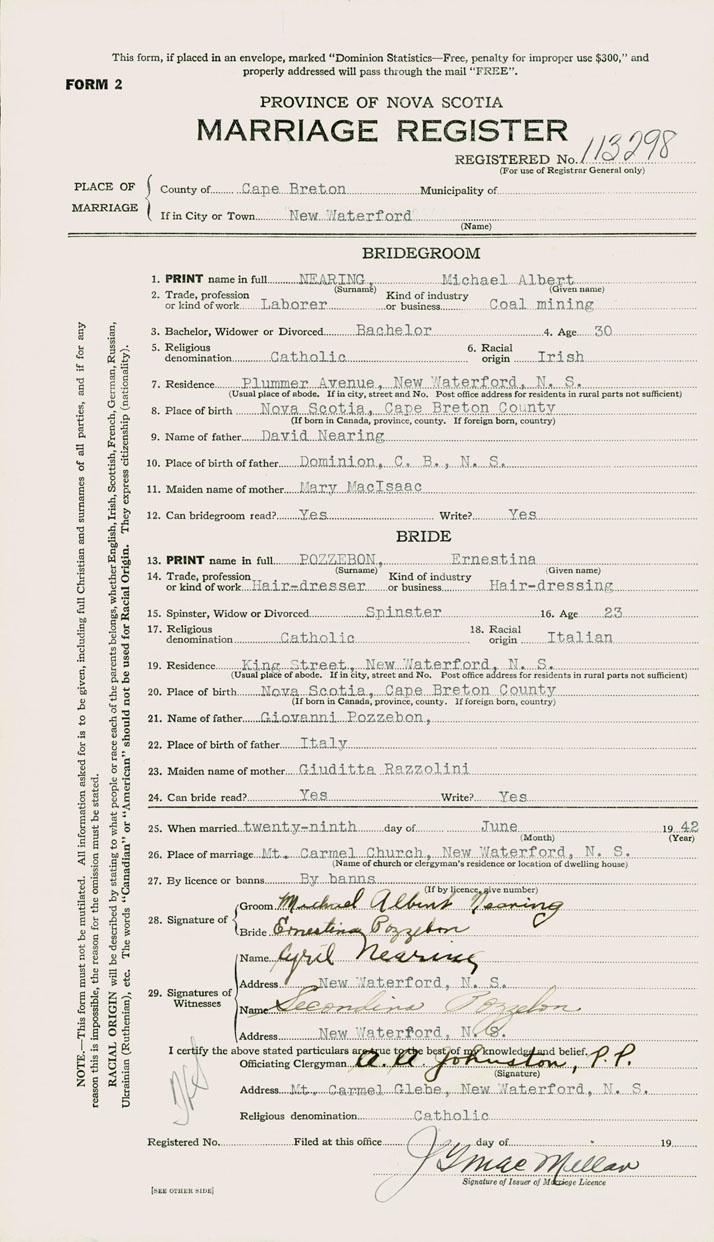 This form, if placed in an envelope, marked "Dominion Statistics—Free, penalty for improper use $300," and
properly addressed will pass through the mail "FREE".
FORM 2
PROVINCE OF NOVA SCOTIA
MARRIAGE REGISTER
REGISTERED No. 113298
(For use of Registrar General only)
PLACE OF MARRIAGE
County of Cape Breton Municipality of
If in City or Town New Waterford
(Name)
BRIDEGROOM
1. PRINT name in full NEARING, Michael Albert
(Surname) (Given name)
2. Trade, profession or kind of work Laborer Kind of industry or business Coal mining
3. Bachelor, Widower or Divorced Bachelor 4. Age 30
5. Religious denomination Catholic 6. Racial origin Irish
7. Residence Plummer Avenue, New Waterford, N. S.
(Usual place of abode. If in city, street and No. Post office address for residents in rural parts not sufficient)
8. Place of birth Nova Scotia, Cape Breton County
(If born in Canada, province, county. If foreign born, country)
9. Name of father David Nearing
10. Place of birth of father Dominion, C. B., N. S.
11. Maiden name of mother Mary MacIsaac
12. Can bridegroom read? Yes Write? Yes
BRIDE
13. PRINT name in full POZZEBON, Ernestina
(Surname) (Given name)
14. Trade, profession or kind of work Hair-dresser Kind of industry or business Hair-dressing
15. Spinster, Widow or Divorced Spinster 16. Age 23
17. Religious denomination Catholic 18. Racial origin Italian
19. Residence King Street, New Waterford, N. S.
(Usual place of abode. If in city, street and No. Post office address for residents in rural parts not sufficient)
20. Place of birth Nova Scotia, Cape Breton County
(If born in Canada, province, county. If foreign born, country)
21. Name of father Giovanni Pozzebon,
22. Place of birth of father Italy
23. Maiden name of mother Giuditta Razzolini
24. Can bride read? Yes Write? Yes
25. When married twenty-ninth day of June 19 42
(Month) (Year)
26. Place of marriage Mt. Carmel Church, New Waterford, N. S.
(Name of church or clergyman's residence or location of dwelling house)
27. By licence or banns By banns
(If by licence, give number)
28. Signature of
Groom Michael Albert Nearing
Bride Ernestina Pozzebon
29. Signatures of Witnesses
Name Cyril Nearing
Address New Waterford, N. S.
Name Secondina Pozzebon
Address New Waterford, N. S.
I certify the above stated particulars are true to the best of my knowledge and belief.
Officiating Clergyman A. A. Johnston, P.P.
(Signature)
Address Mt. Carmel Glebe, New Waterford, N. S.
Religious denomination Catholic
Registered No. Filed at this office day of 19
J G MacMillan
Signature of Issuer of Marriage Licence
[SEE OTHER SIDE]
NOTE.—This form must not be mutilated. All information asked for is to be given, including full Christian and surnames of all parties, and if for any
reason this is impossible, the reason for the omission must be stated.
RACIAL ORIGIN will be described by stating to what people or race each of the parents belongs, whether English, Irish, Scottish, French, German, Russian,
Ukrainian (Ruthenian), etc. The words "Canadian" or "American" should not be used for Racial Origin. They express citizenship (nationality).